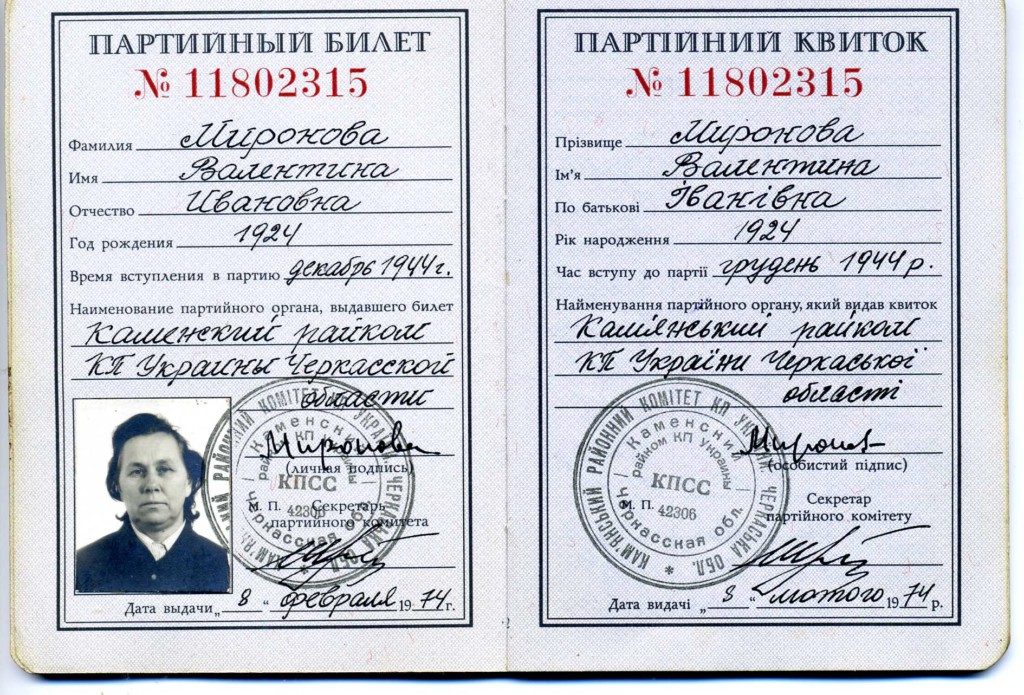 ПАРТИЙНЫЙ БИЛЕТ
№ 11802315
Фамилия Миронова
Имя Валентина
Отчество Ивановна
Год рождения 1924
Время вступления в партию декабрь 1944г.
Наименование партийного органа, выдавшего билет
Каменский райком
КП Украины Черкасской
области
Миронова
(личная подпись)
М. П. Секретарь
партийного комитета
КАМ'ЯНСЬКИЙ РАЙОННИЙ КОМІТЕТ КП УКРАЇНИ ЧЕРКАСЬКА ОБЛ.
Каменский
райком КП Украины
КПСС
42306
Черкасская обл.
Дата выдачи „ 8 “ февраля 1974 г.
ПАРТІЙНИЙ КВИТОК
№ 11802315
Прізвище Миронова
Ім'я Валентина
По батькові Іванівна
Рік народження 1924
Час вступу до партії грудень 1944 р.
Найменування партійного органу, який видав квиток
Кам'янський райком
КП України Черкаської
області
(особистий підпис)
М. П. Секретар
партійного комітету
КАМ'ЯНСЬКИЙ РАЙОННИЙ КОМІТЕТ КП УКРАЇНИ ЧЕРКАСЬКА ОБЛ.
Каменский
райком КП Украины
КПСС
42306
Черкасская обл.
Дата видачі „ 8 “ лютого 1974 р.